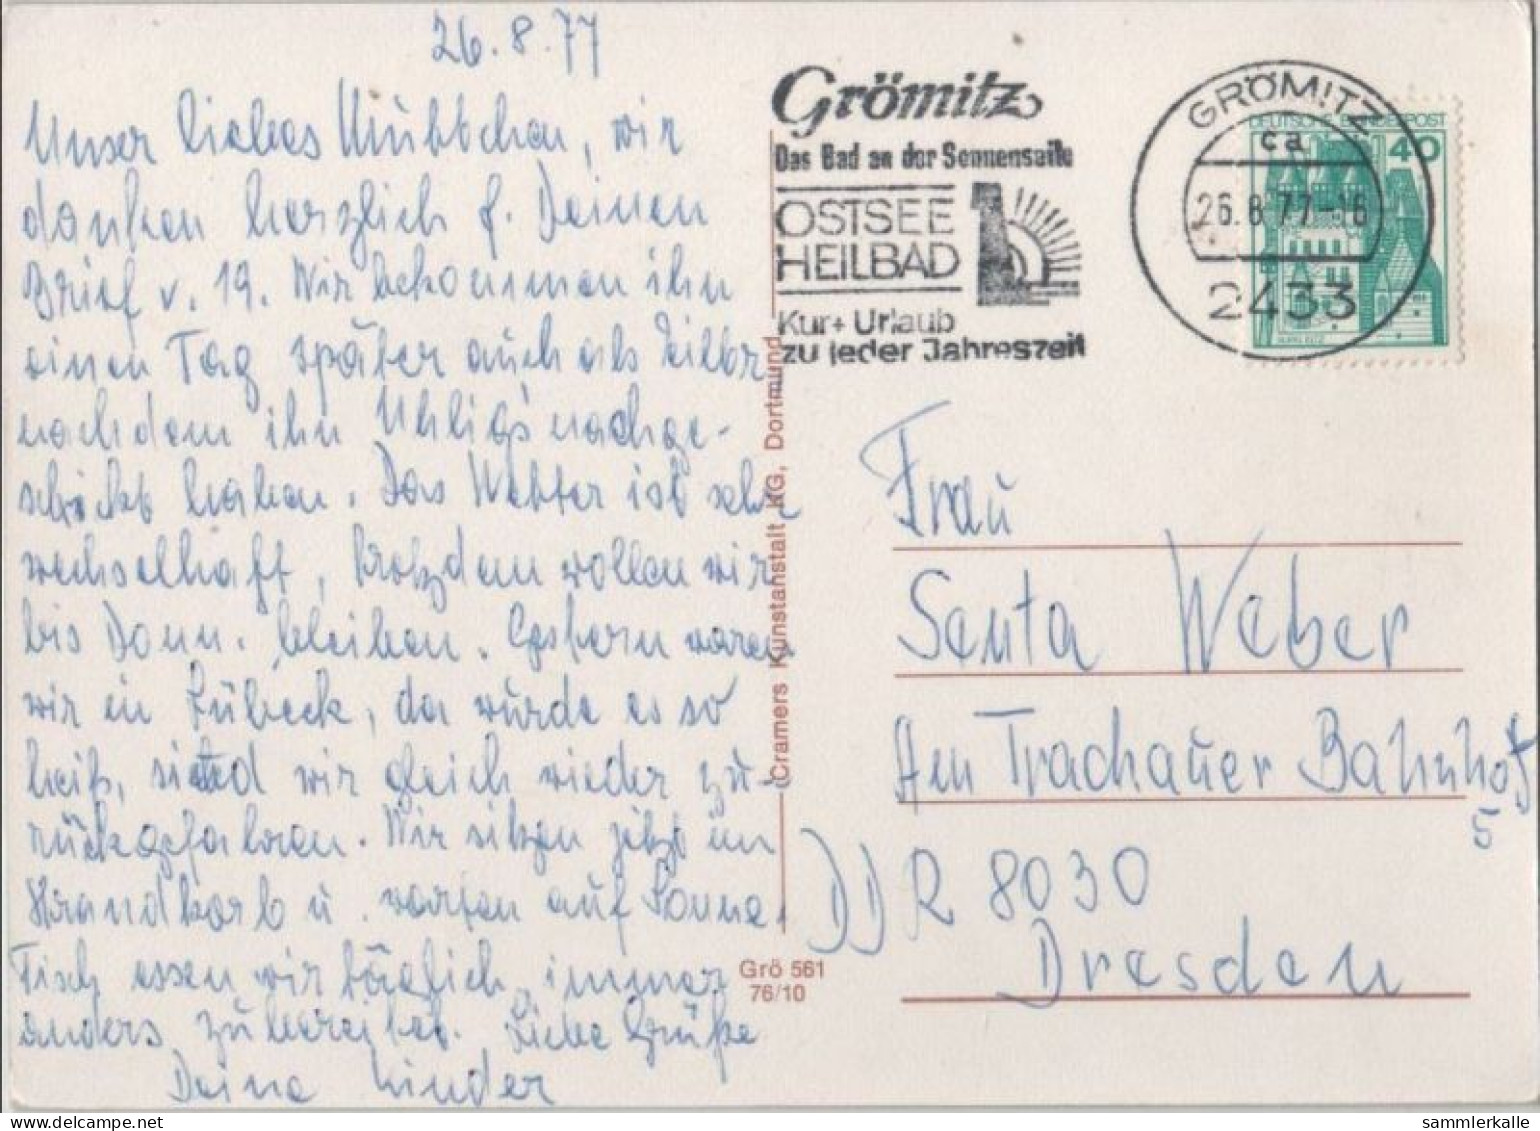 26.8.77
Unser liebes Muttchen, wir
danken herzlich f. Deinen
Brief v. 19. Wir bekommen ihn
einen Tag später auch als
nachdem ihn Uhligs nachge-
schickt haben. Das Wetter ist sehr
wechselhaft, trotzdem wollen wir
bis Donn. bleiben. Gestern waren
wir in Lübeck, da wurde es so
heiß, sind wir gleich wieder zu-
rückgefahren. Wir sitzen jetzt im
Strandkorb u. warten auf Sonne.
Fisch essen wir täglich, immer
anders zubereitet. Liebe Grüße
Deine Kinder
Cramers Kunstanstalt KG, Dortmund
Grö 561
76/10
Grömitz
Das Bad an der Sonnenseite
OSTSEE
HEILBAD
Kur + Urlaub
zu jeder Jahreszeit
GRÖMITZ
ca
26.8.77-16
2433
DEUTSCHE BUNDESPOST
40
BURG ELTZ
Frau
Senta Weber
Am Trachauer Bahnhof
5
DDR 8030
Dresden
sammlerkalle